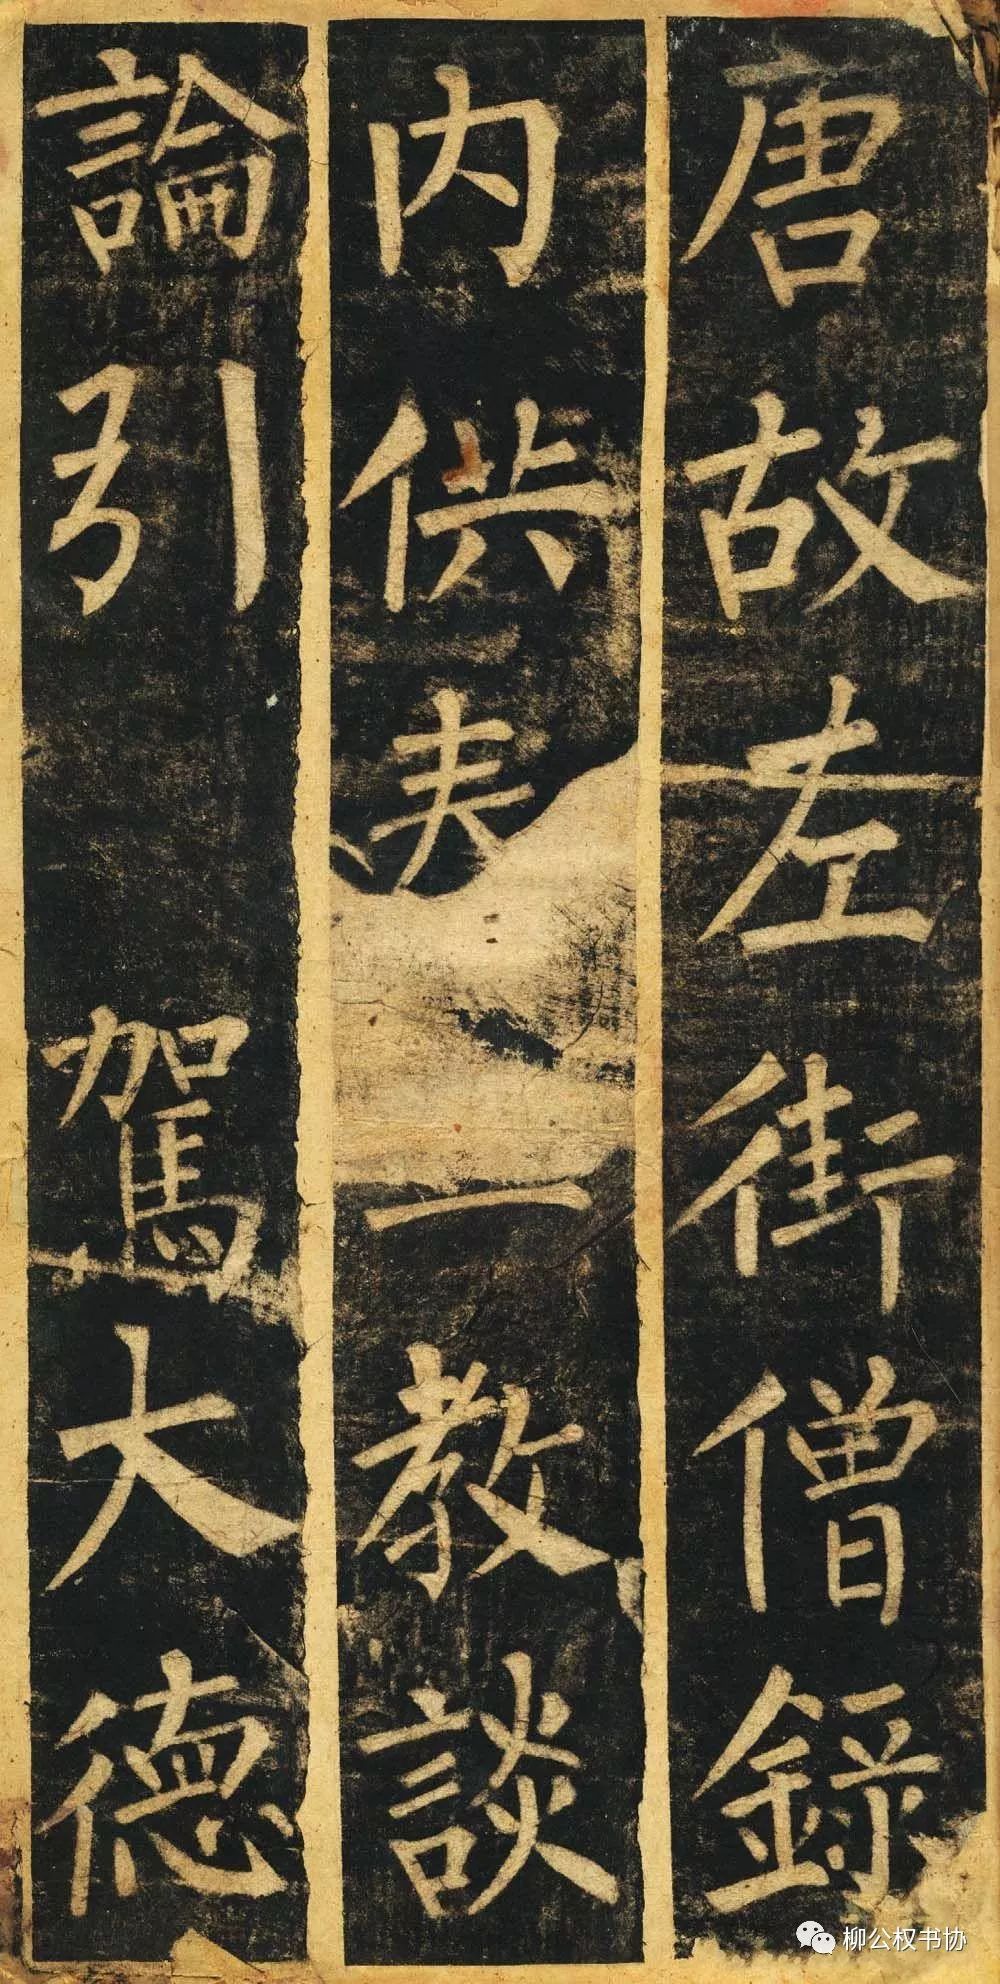 唐故左街僧錄
内供奉三教談
論引駕大德
柳公权书协